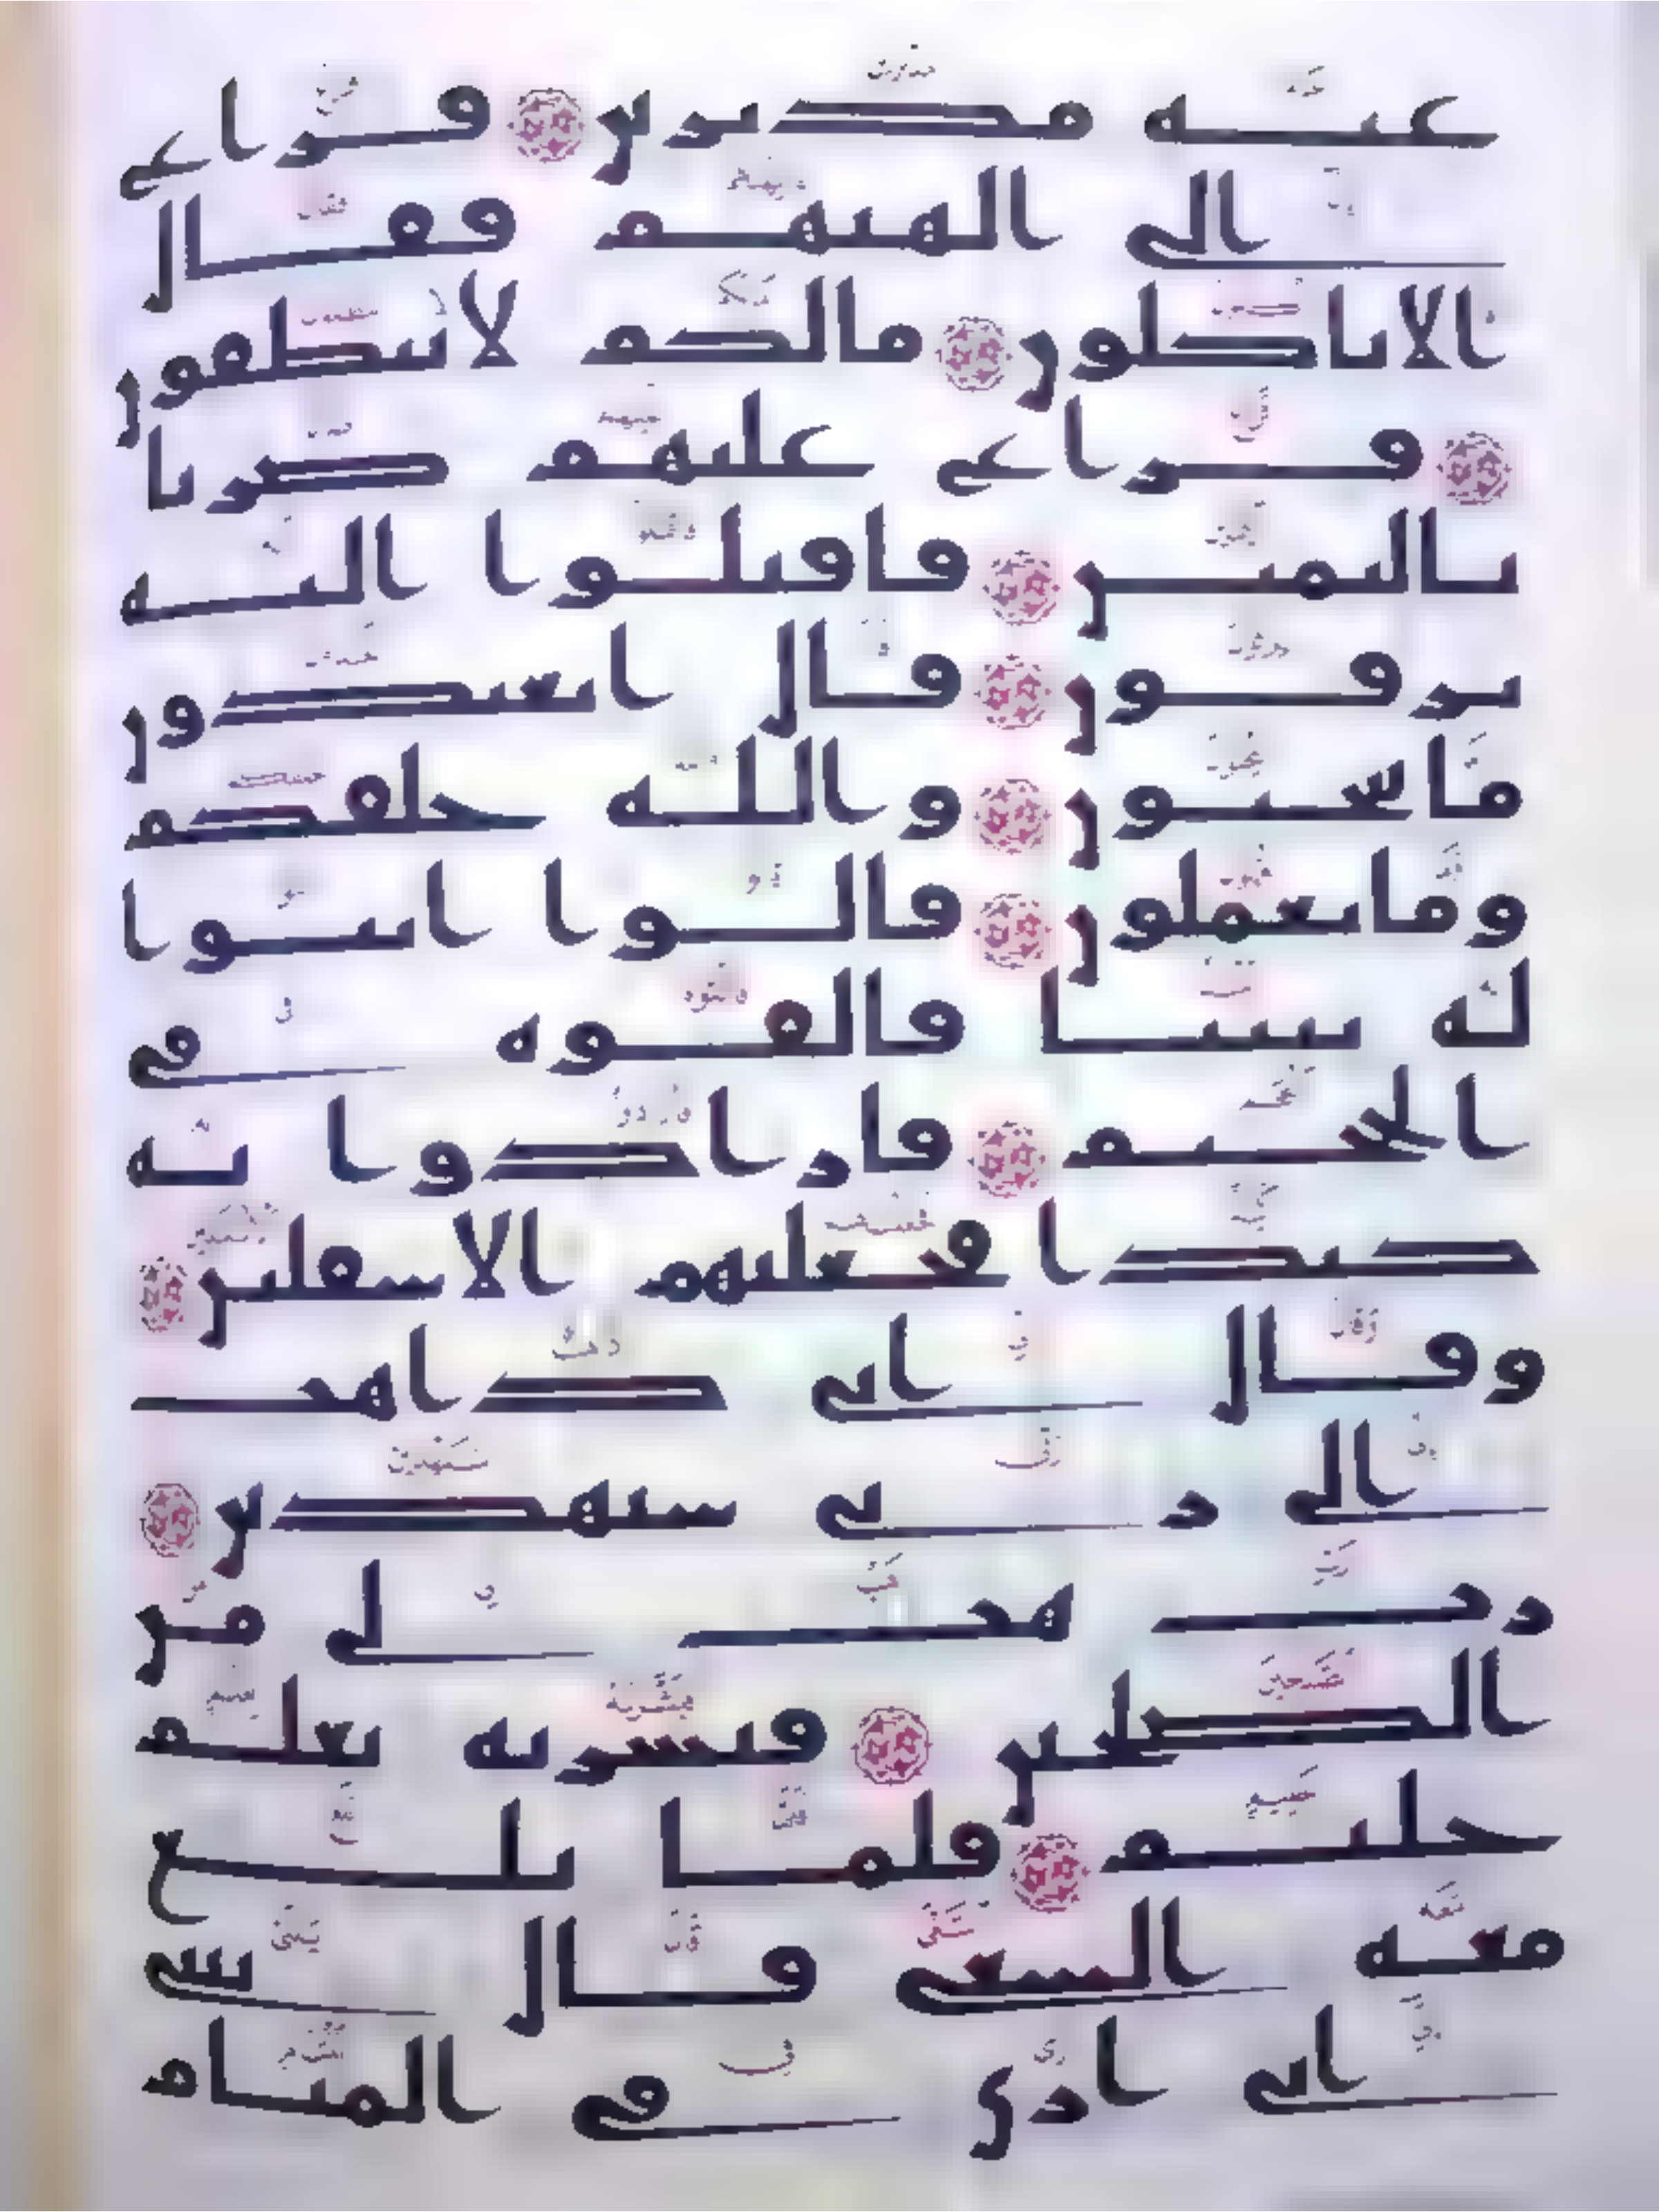 عنه مدبرين ۝ فراغ
الى الهتهم فقال
الا تاكلون ۝ مالكم لا تنطقون
۝ فراغ عليهم ضربا
باليمين ۝ فاقبلوا اليه
يزفون ۝ قال اتعبدون
ما تنحتون ۝ والله خلقكم
وما تعملون ۝ قالوا ابنوا
له بنينا فالقوه في
الجحيم ۝ فارادوا به
كيدا فجعلنهم الاسفلين ۝
وقال اني ذاهب
الى ربي سيهدين ۝
رب هب لي من
الصلحين ۝ فبشرنه بغلم
حليم ۝ فلما بلغ
معه السعي قال يبني
اني ارى في المنام